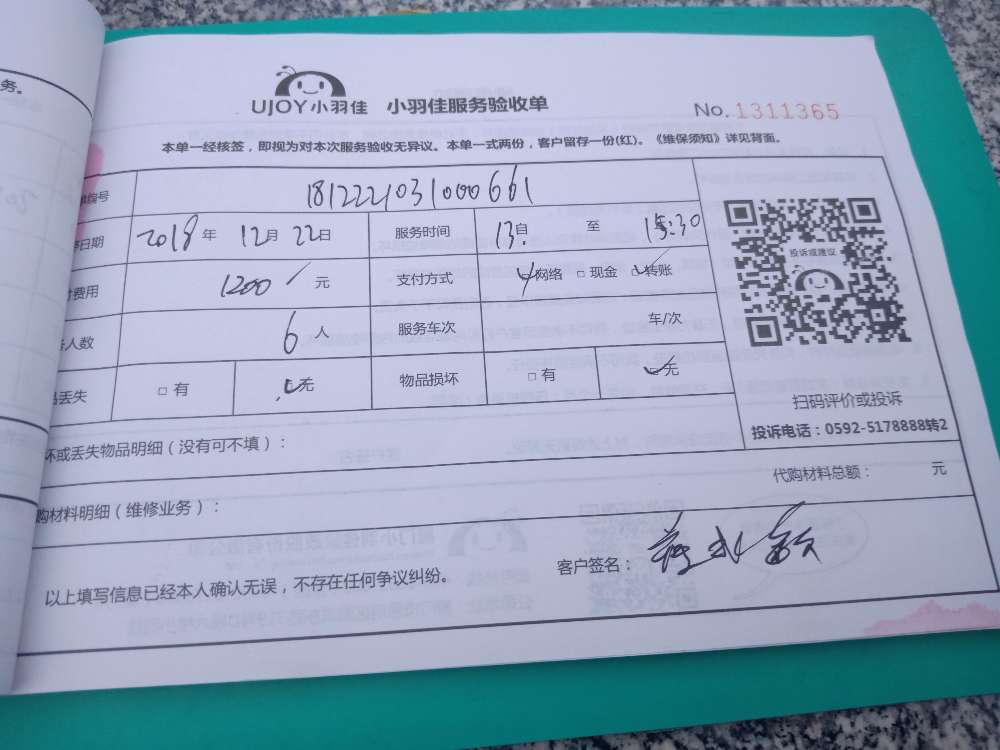 务。
UJOY小羽佳 小羽佳服务验收单
No.1311365
本单一经核签，即视为对本次服务验收无异议。本单一式两份，客户留存一份(红)。《维保须知》详见背面。
编号 1812221031000661
日期 2018年 12月 22日 服务时间 13自 至 15:30
费用 1200 元 支付方式 □网络 □现金 □转账
人数 6人 服务车次 车/次
丢失 □有 □无 物品损坏 □有 □无
投诉或建议
扫码评价或投诉
投诉电话：0592-5178888转2
坏或丢失物品明细（没有可不填）：
购材料明细（维修业务）： 代购材料总额： 元
以上填写信息已经本人确认无误，不存在任何争议纠纷。 客户签名：